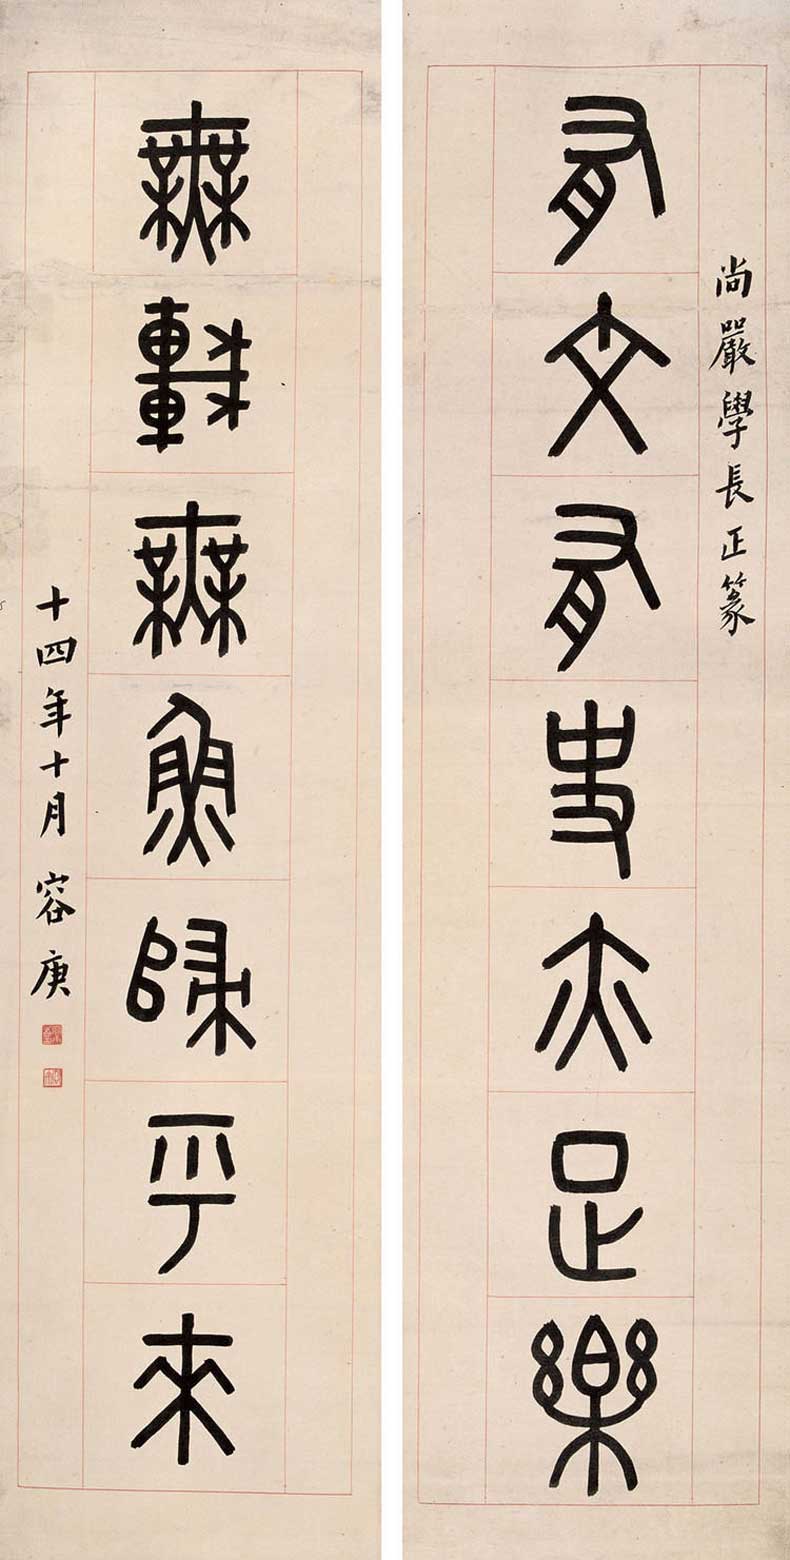 尚嚴學長正篆
有文有史亦足樂
無車無魚歸乎來
十四年十月容庚